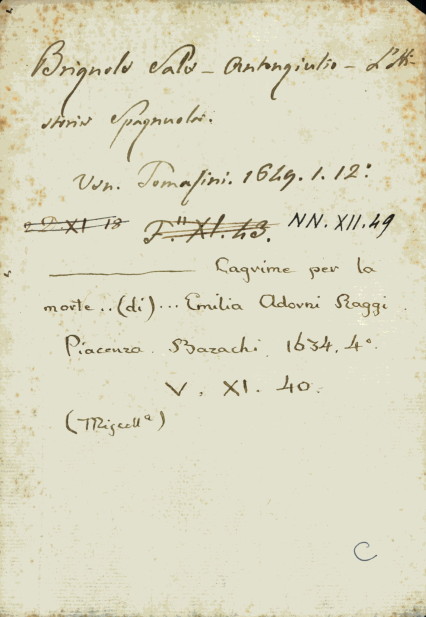 Brignole Sale – Antongiulio – L'Hi-
storia Spagnuola.
Ven. Tomasini. 1649. 1. 12:
D. XI 18 F." XI. 43. NN. XII. 49
Lagrime per la
morte .. (di) ... Emilia Adorni Raggi
Piacenza. Bazachi. 1634. 4°.
V. XI. 40.
(Miscellª)
C